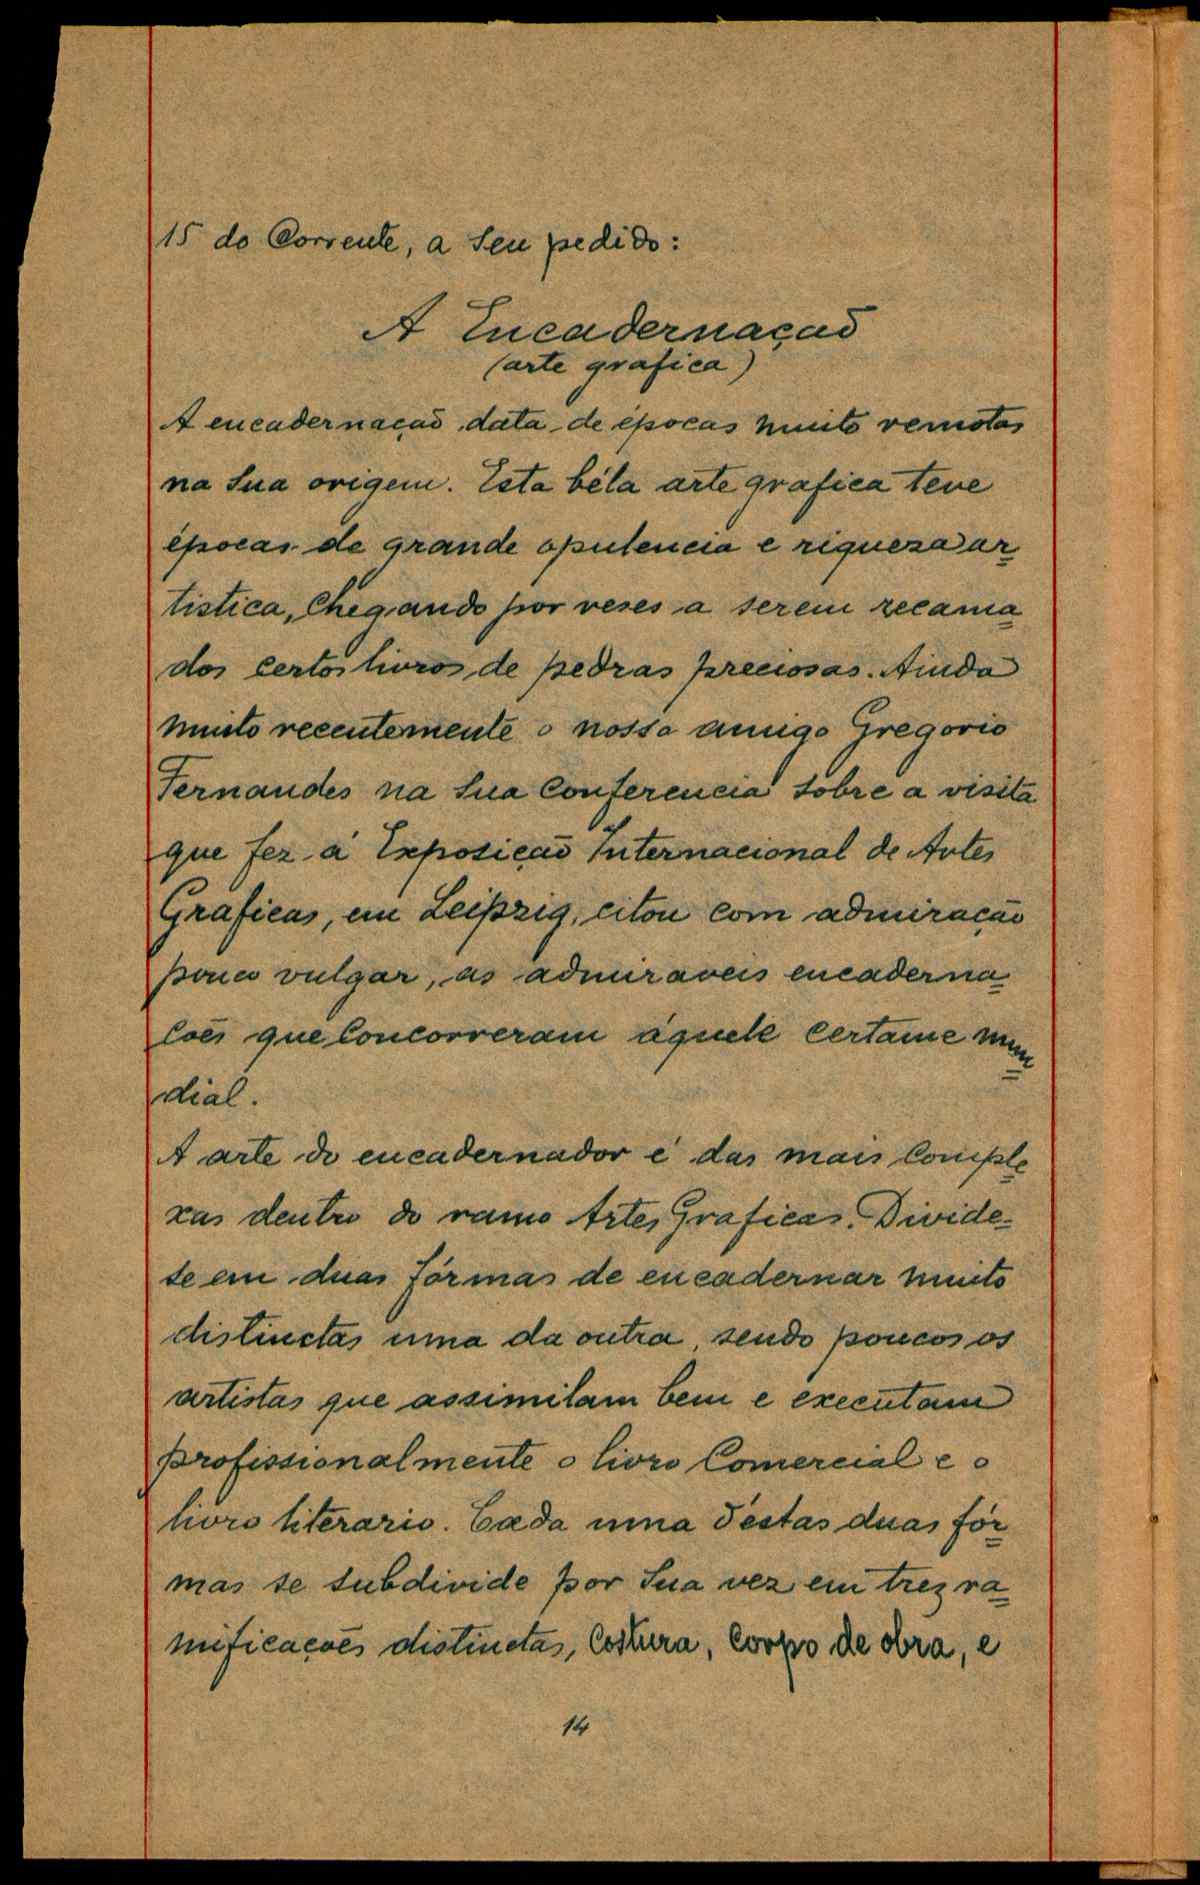 15 do Corrente, a seu pedido:
A Encadernação
(arte grafica)
A encadernação data de épocas muito remotas
na sua origem. Esta béla arte grafica teve
épocas de grande opulencia e riqueza ar=
tistica, chegando por veses a serem recama=
dos certos livros de pedras preciosas. Ainda
muito recentemente o nosso amigo Gregorio
Fernandes na sua conferencia sobre a visita
que fez á Exposição Internacional de Artes
Graficas, em Leipzig, citou com admiração
pouco vulgar, as admiraveis encaderna=
ções que concorreram áquele certame mun=
dial.
A arte do encadernador é das mais comple=
xas dentro do ramo Artes Graficas. Divide=
se em duas fórmas de encadernar muito
distinctas uma da outra, sendo poucos os
artistas que assimilam bem e executam
profissionalmente o livro Comercial e o
livro literario. Cada uma d'éstas duas fór=
mas se subdivide por sua vez em trez ra=
mificações distinctas, Costura, Corpo de obra, e
14